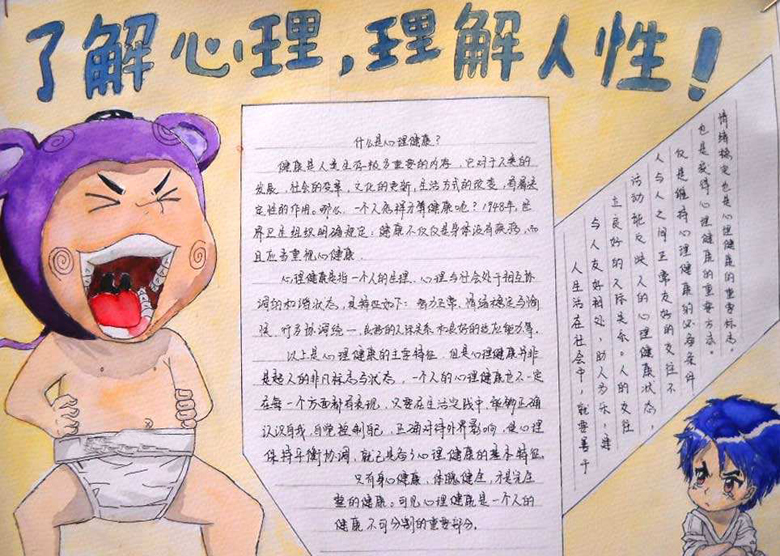 了解心理，理解人性！
什么是心理健康？
健康是人类生存极为重要的内容，它对于人类的
发展，社会的变革，文化的更新，生活方式的改变，有着决
定性的作用。那么，一个人怎样才算健康呢？1948年，世
界卫生组织明确规定：健康不仅仅是身体没有疾病，而
且应当重视心理健康。
心理健康是指一个人的生理、心理与社会处于相互协
调的和谐状态，其特征如下：智力正常、情绪稳定与愉
悦、行为协调统一、良好的人际关系和良好的适应能力等。
以上是心理健康的主要特征，但是心理健康并非
是超人的非凡标志与状态，一个人的心理健康也不一定
在每一个方面都有表现，只要在生活实践中，能够正确
认识自我，自觉控制自己，正确对待外界影响，使心理
保持平衡协调，就已具备了心理健康的基本特征。
只有身心健康、体魄健全，才是完
整的健康。可见心理健康是一个人的
健康不可分割的重要部分。
情绪稳定也是心理健康的重要标志。
也是获得心理健康的重要方法。
仅是维持心理健康的必备条件
人与人之间正常友好的交往不
活动能反映人的心理健康状态，
立良好的人际关系。人的交往
与人友好相处，助人为乐，建
人生活在社会中，就要善于